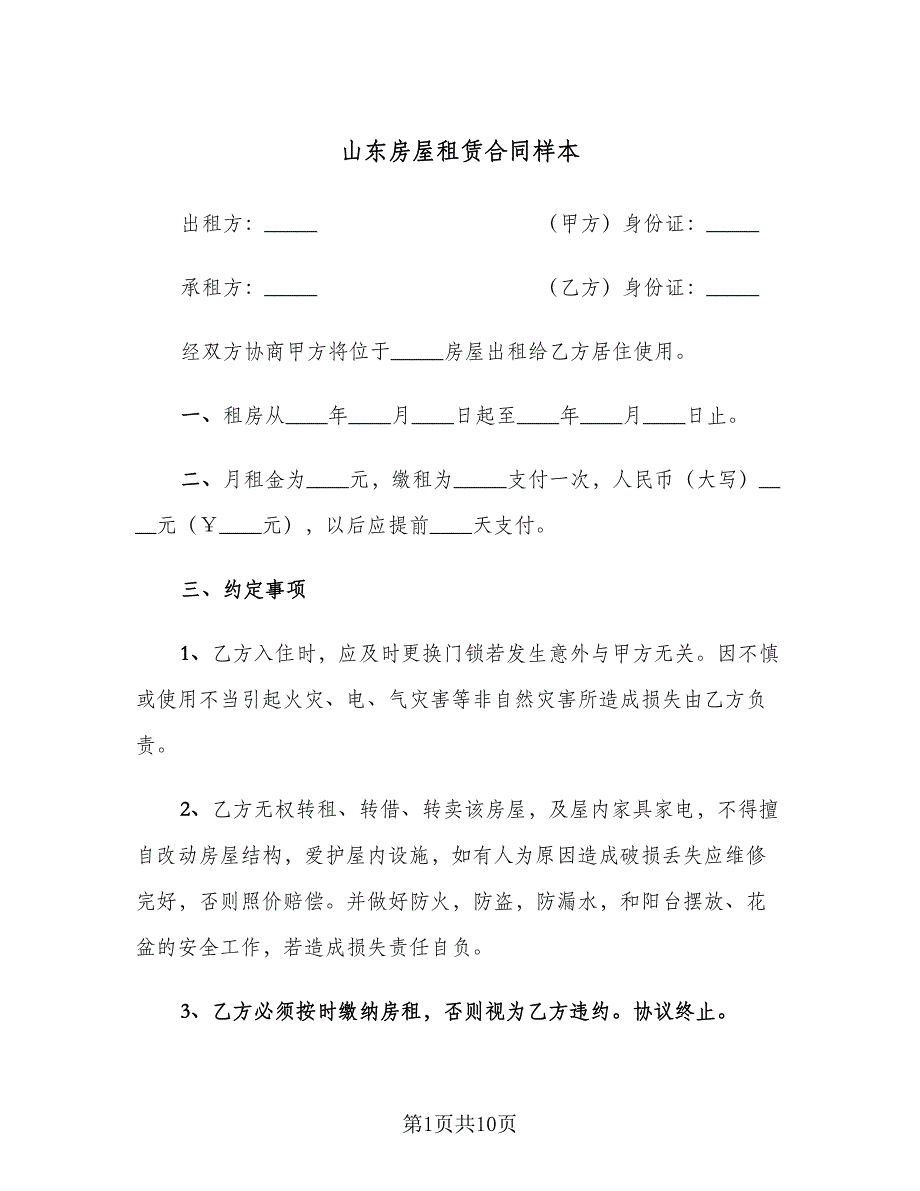 山东房屋租赁合同样本
出租方：_____ （甲方）身份证：_____
承租方：_____ （乙方）身份证：_____
经双方协商甲方将位于_____房屋出租给乙方居住使用。
一、租房从____年____月____日起至____年____月____日止。
二、月租金为____元，缴租为_____支付一次，人民币（大写）__
__元（￥____元），以后应提前____天支付。
三、约定事项
1、乙方入住时，应及时更换门锁若发生意外与甲方无关。因不慎
或使用不当引起火灾、电、气灾害等非自然灾害所造成损失由乙方负
责。
2、乙方无权转租、转借、转卖该房屋，及屋内家具家电，不得擅
自改动房屋结构，爱护屋内设施，如有人为原因造成破损丢失应维修
完好，否则照价赔偿。并做好防火，防盗，防漏水，和阳台摆放、花
盆的安全工作，若造成损失责任自负。
3、乙方必须按时缴纳房租，否则视为乙方违约。协议终止。
第1页共10页